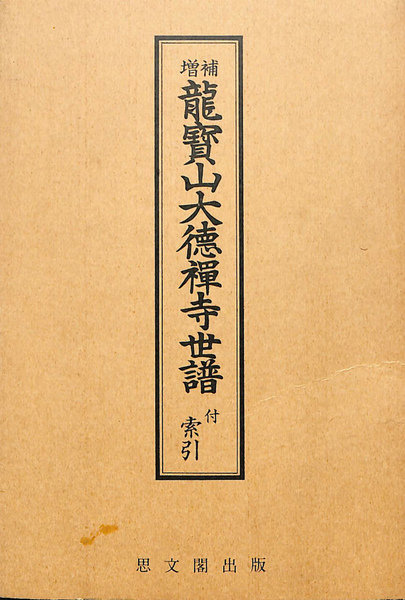 増補
龍寶山大德禪寺世譜
付
索引
思文閣出版